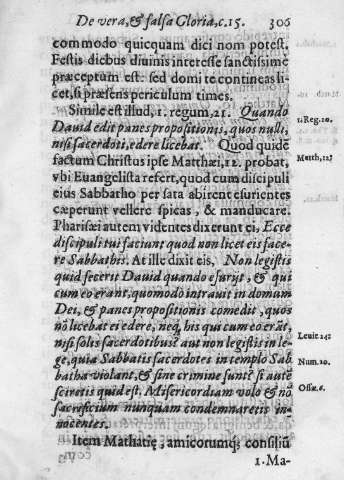 De vera, & falsa Gloria, c. 15. 306
commodo quicquam dici non potest.
Festis diebus diuinis interesse sanctissime
præceptum est: sed domi te contineas li-
cet, si præsens periculum times.
Simile est illud, 1. regum, 21. Quando
Dauid edit panes propositionis, quos nulli,
nisi sacerdoti, edere licebat. Quod quidē
factum Christus ipse Matthæi, 12. probat,
vbi Euangelista refert, quod cum discipuli
eius Sabbatho per sata abirent esurientes
cæperunt vellere spicas, & manducare.
Pharisæi autem videntes dixerunt ei, Ecce
discipuli tui faciunt quod non licet eis face-
re Sabbathis. At ille dixit eis, Non legistis
quid fecerit Dauid quando esurijt, & qui
cum eo erant, quomodo intrauit in domum
Dei, & panes propositionis comedit, quos
nō licebat ei edere, neq; his qui cum eo erāt,
nisi solis sacerdotibus? aut non legistis in le-
ge, quia Sabbatis sacerdotes in templo Sab
batha violant, & sine crimine sunt? si autē
sciretis quid est. Misericordiam volo & nō
sacrificium nunquam condemnaretis in-
nocentes.
Item Mathatię, amicorumq; consiliū
1. Ma-
1. Reg. 20.
Matth, 12.
Leuit 24.
Num. 20.
Osſæ. 6.